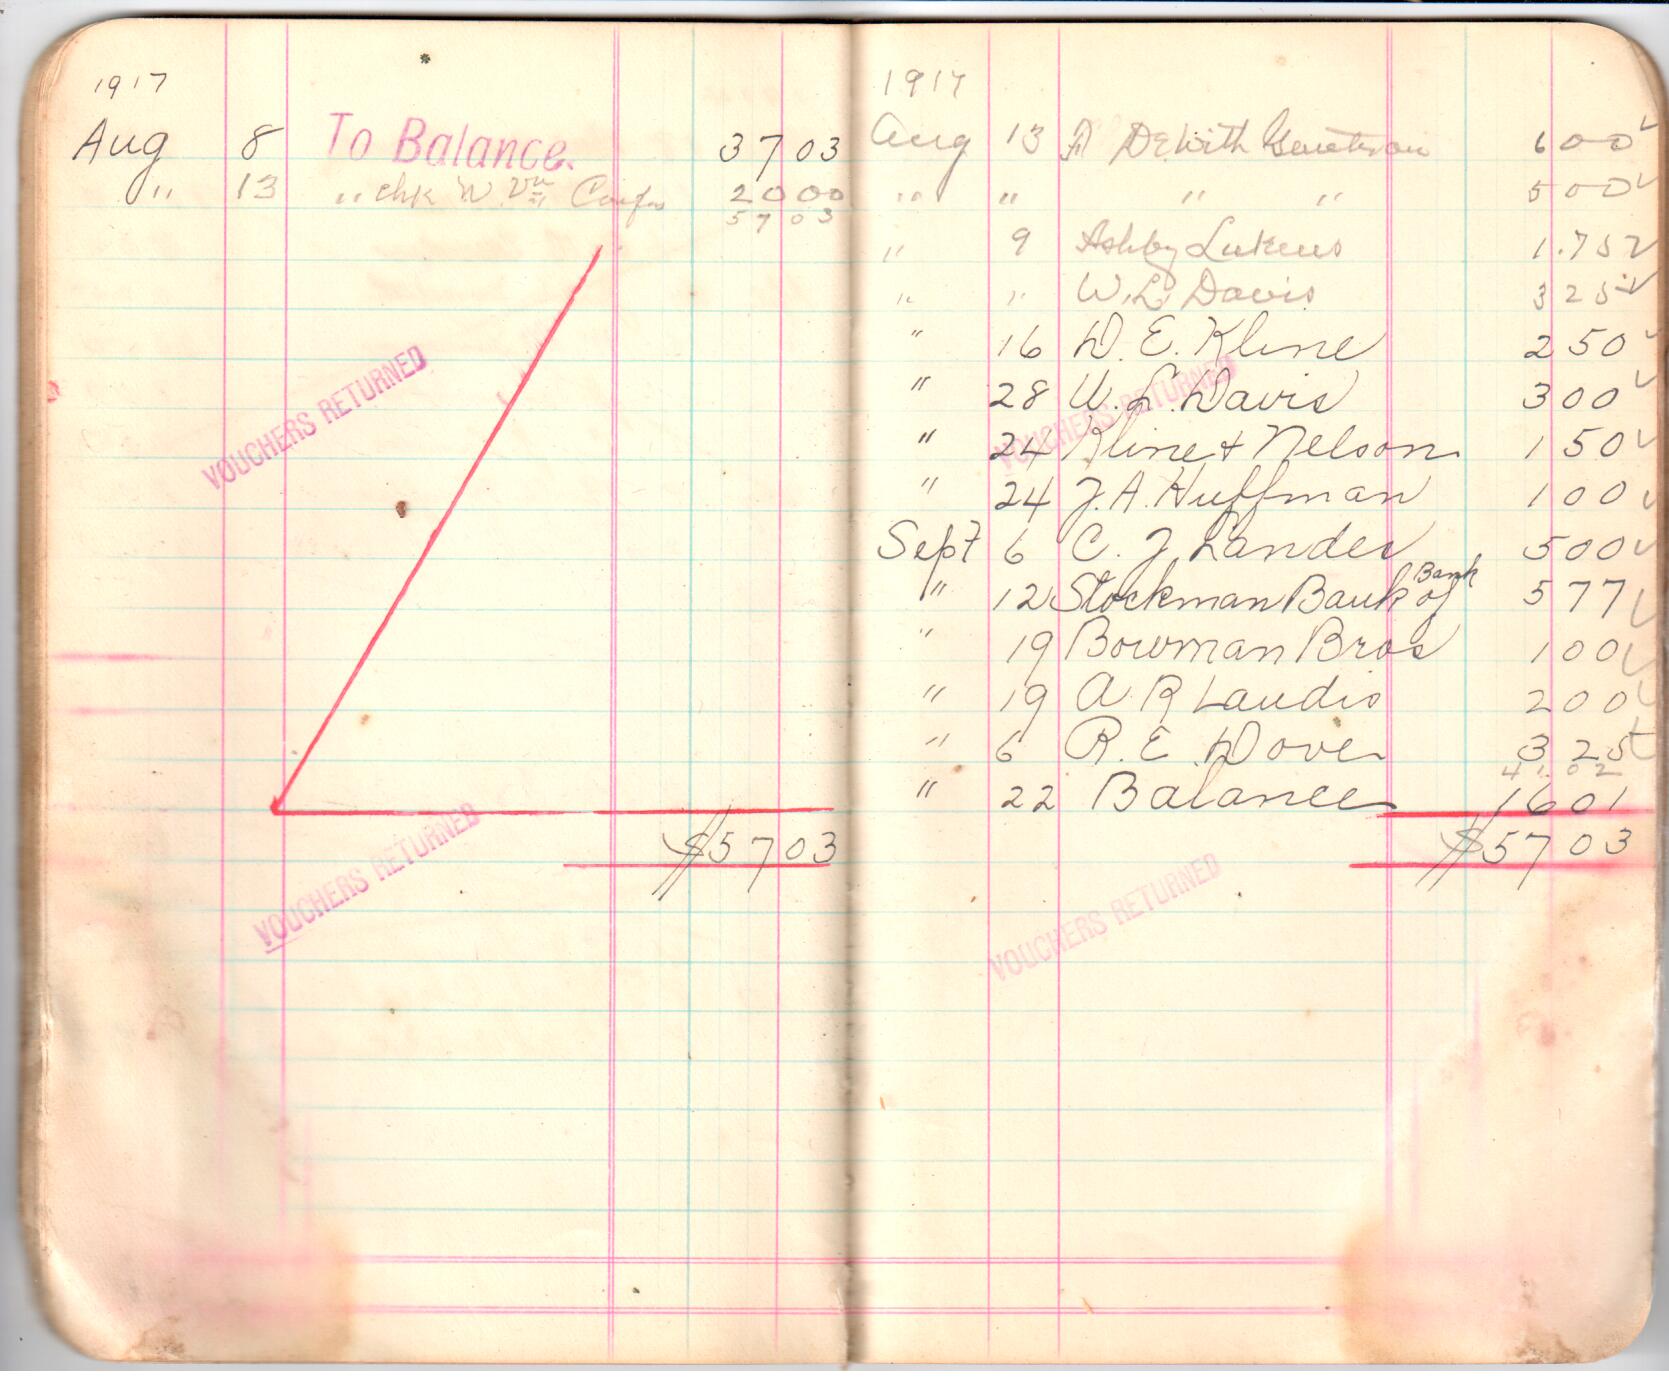 1917
Aug 8 To Balance. 37 03
" 13 " chk W. Va 20 00
57 03
VOUCHERS RETURNED
$57 03
VOUCHERS RETURNED
1917
Aug 13 DeWith 6 00
" " " " 5 00
" 9 Ashby Lukens 1.75
" " W. L. Davis 3 25
" 16 D. E. Kline 2 50
" 28 W. L. Davis 3 00
VOUCHERS RETURNED
" 24 Kline & Nelson 1 50
" 24 J. A. Huffman 1 00
Sept 6 C. J. Landes 5 00
" 12 Stockman Bank of Bank 5 77
" 19 Bowman Bros 1 00
" 19 A R Landis 2 00
" 6 R. E. Dove 3 25
41.02
" 22 Balance 16 01
$57 03
VOUCHERS RETURNED